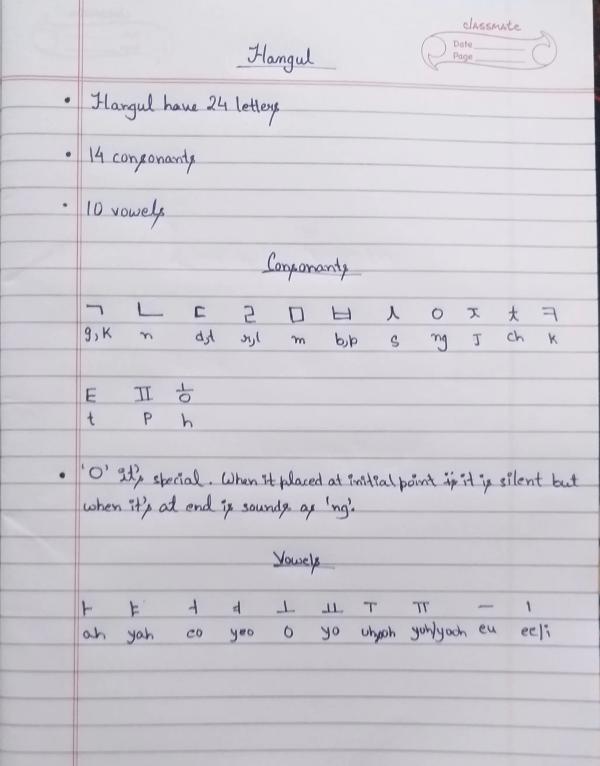 classmate
Date
Page
Hangul
• Hangul have 24 letters
• 14 consonants
• 10 vowels
Consonants
ㄱ ㄴ ㄷ ㄹ ㅁ ㅂ ㅅ ㅇ ㅈ ㅊ ㅋ
g,k n d,t r,l m b,p s ng J ch k
ㅌ ㅍ ㅎ
t p h
• 'O' it's special. When it placed at initial point it is silent but
when it's at end is sounds as 'ng'.
Vowels
ㅏ ㅑ ㅓ ㅕ ㅗ ㅛ ㅜ ㅠ ㅡ ㅣ
ah yah eo yeo o yo yuh/yooh eu ee/i